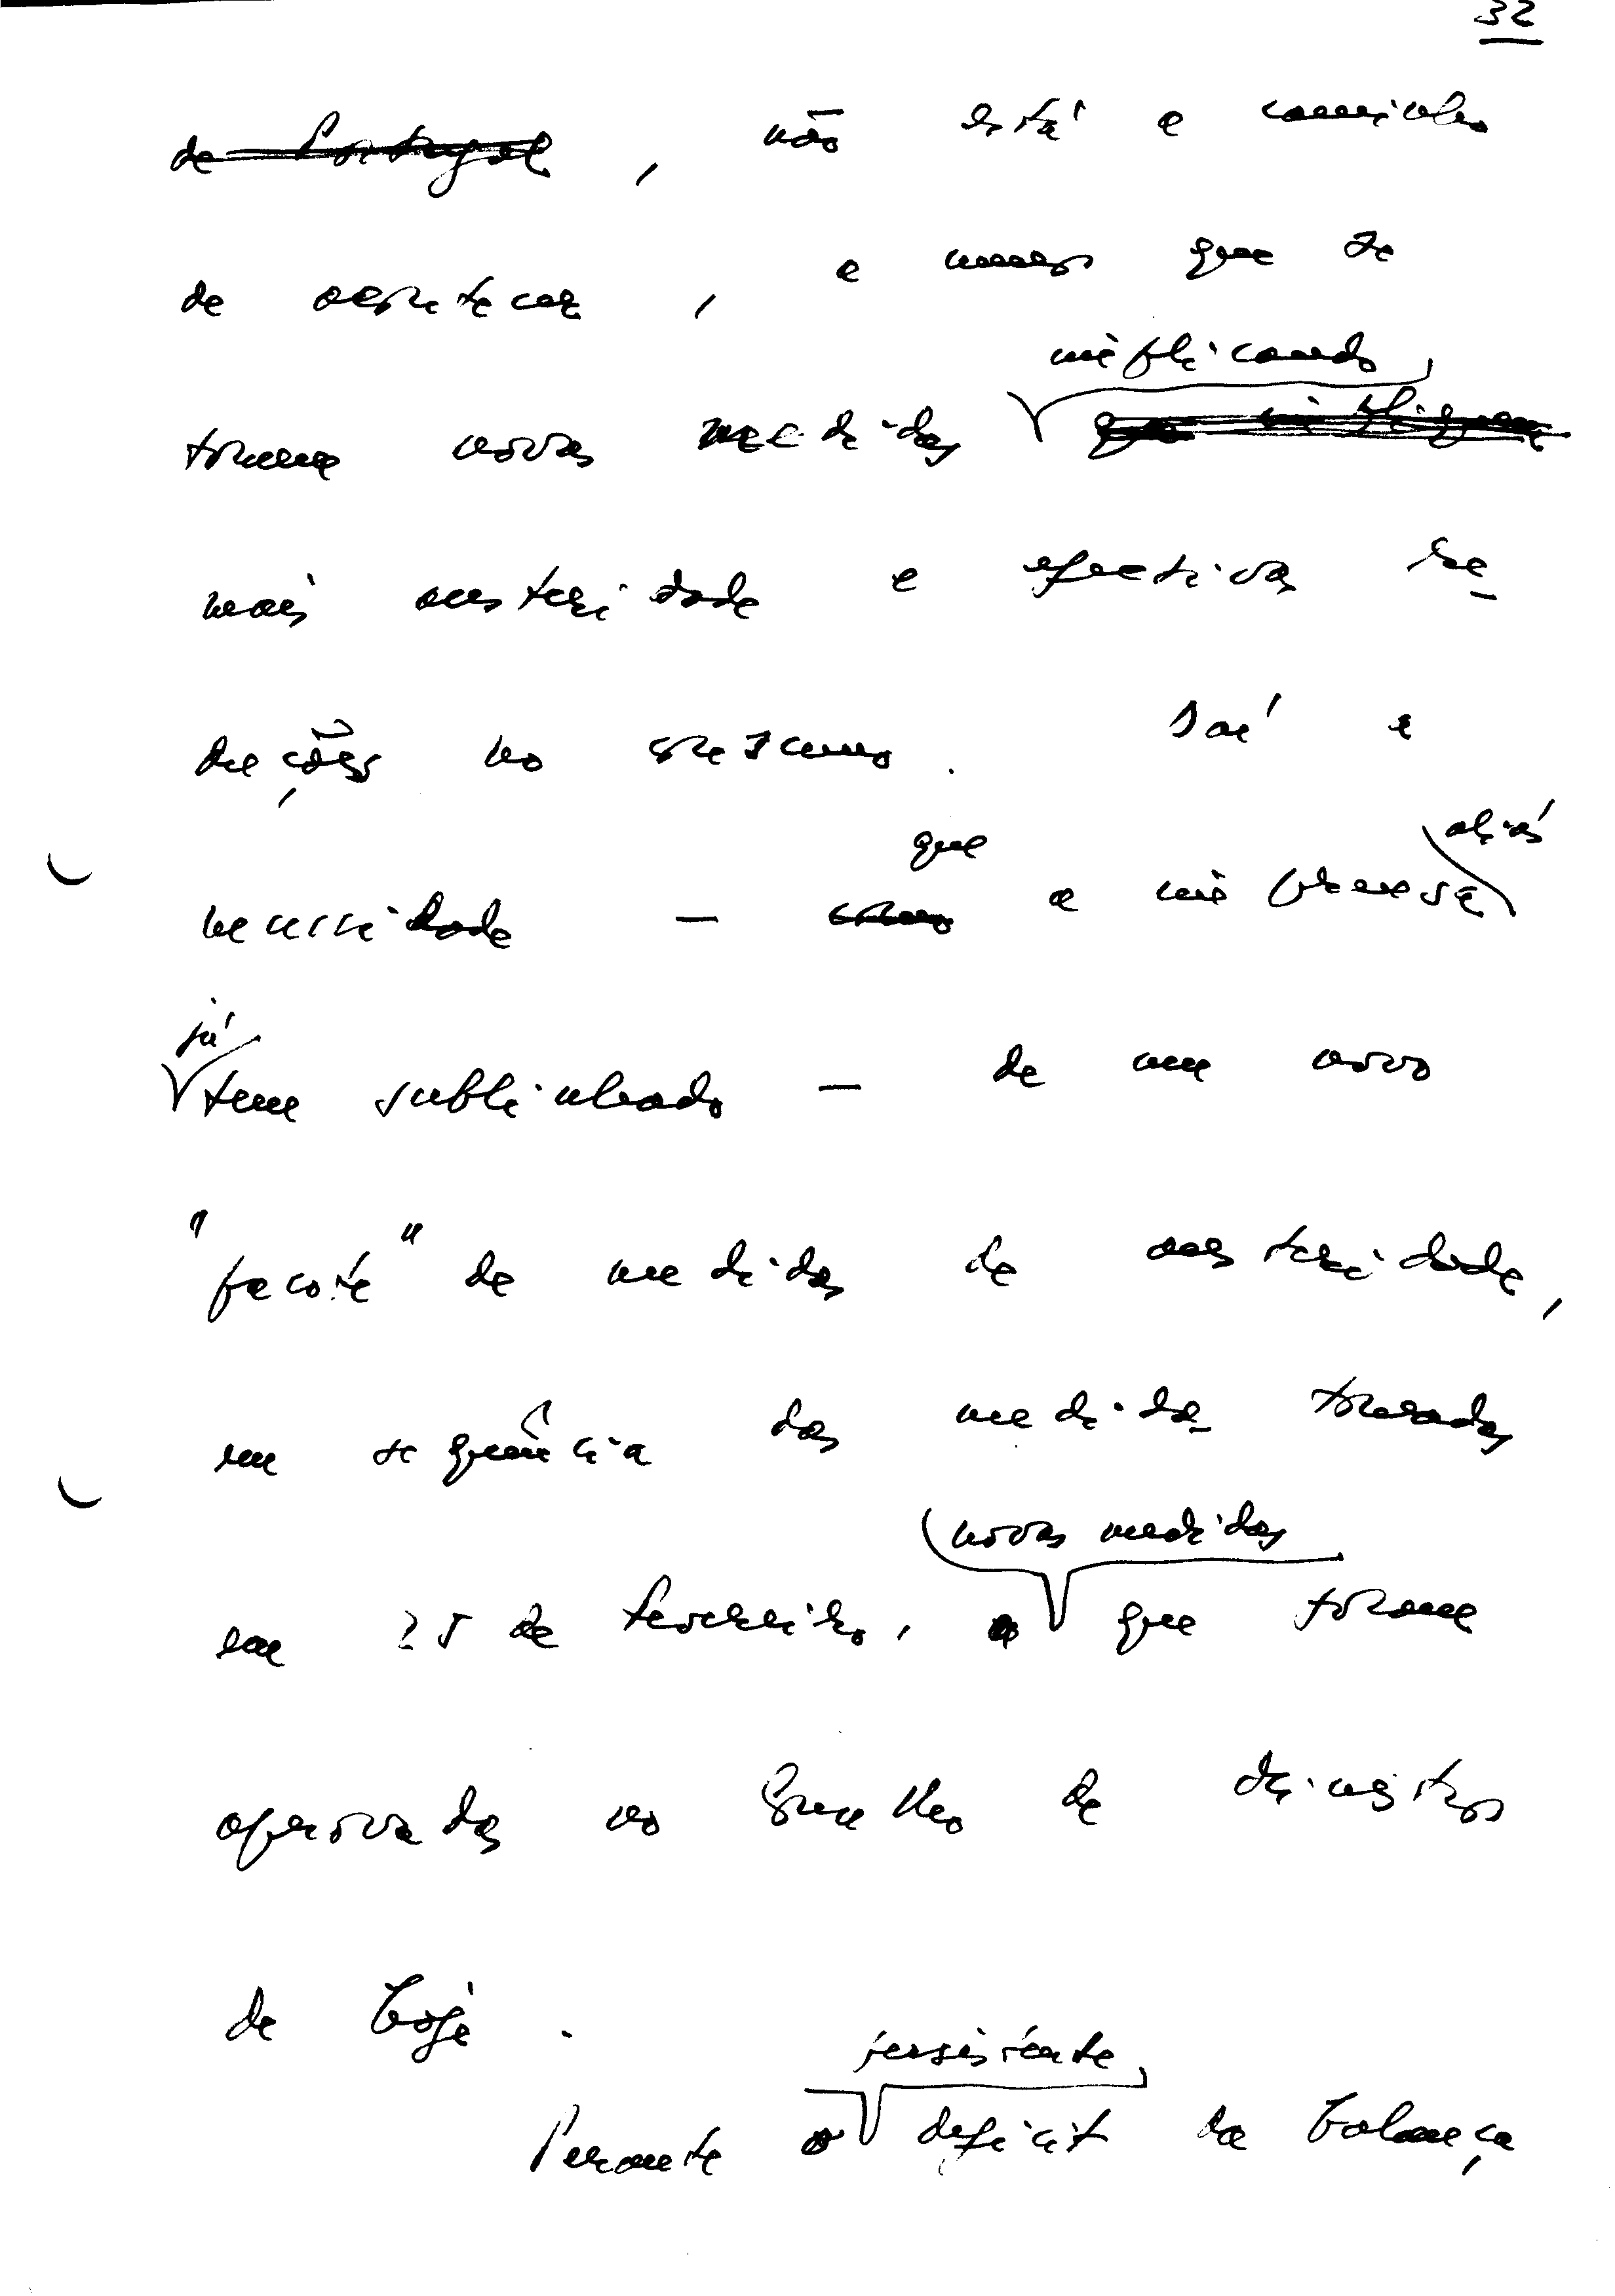 32
de Portugal, não está a caminho
de asfixiar, a menos que se
implicando
tome novas medidas que impliquem
mais austeridade e efectivas re-
duções no consumo. Daí a
que aliás
necessidade — como a imprensa
já
tem sublinhado — de um novo
"pacote" de medidas de austeridade,
em sequência das medidas tomadas
novas medidas
em 25 de Fevereiro, que foram
aprovadas no Conselho de Ministros
de hoje.
persistente
Perante o deficit da balança